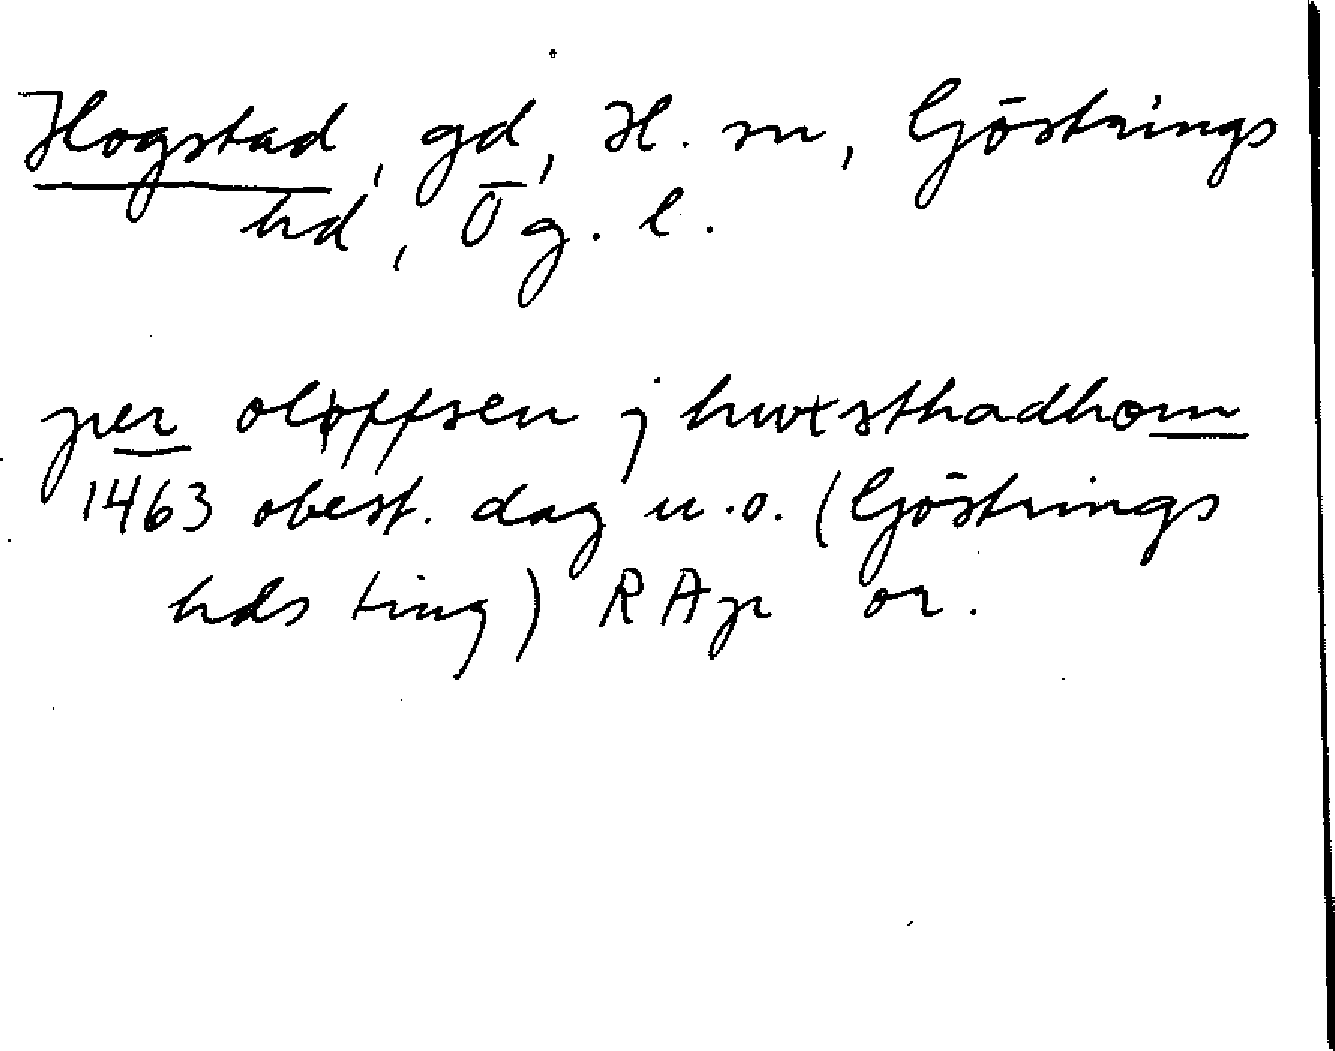 Hogstad, gd, H. sn, Göstrings
hd, Ög. l.
per oloffsen j hwxsthadhom
1463 obest. dag u.o. (Göstrings
hds ting) RAp or.